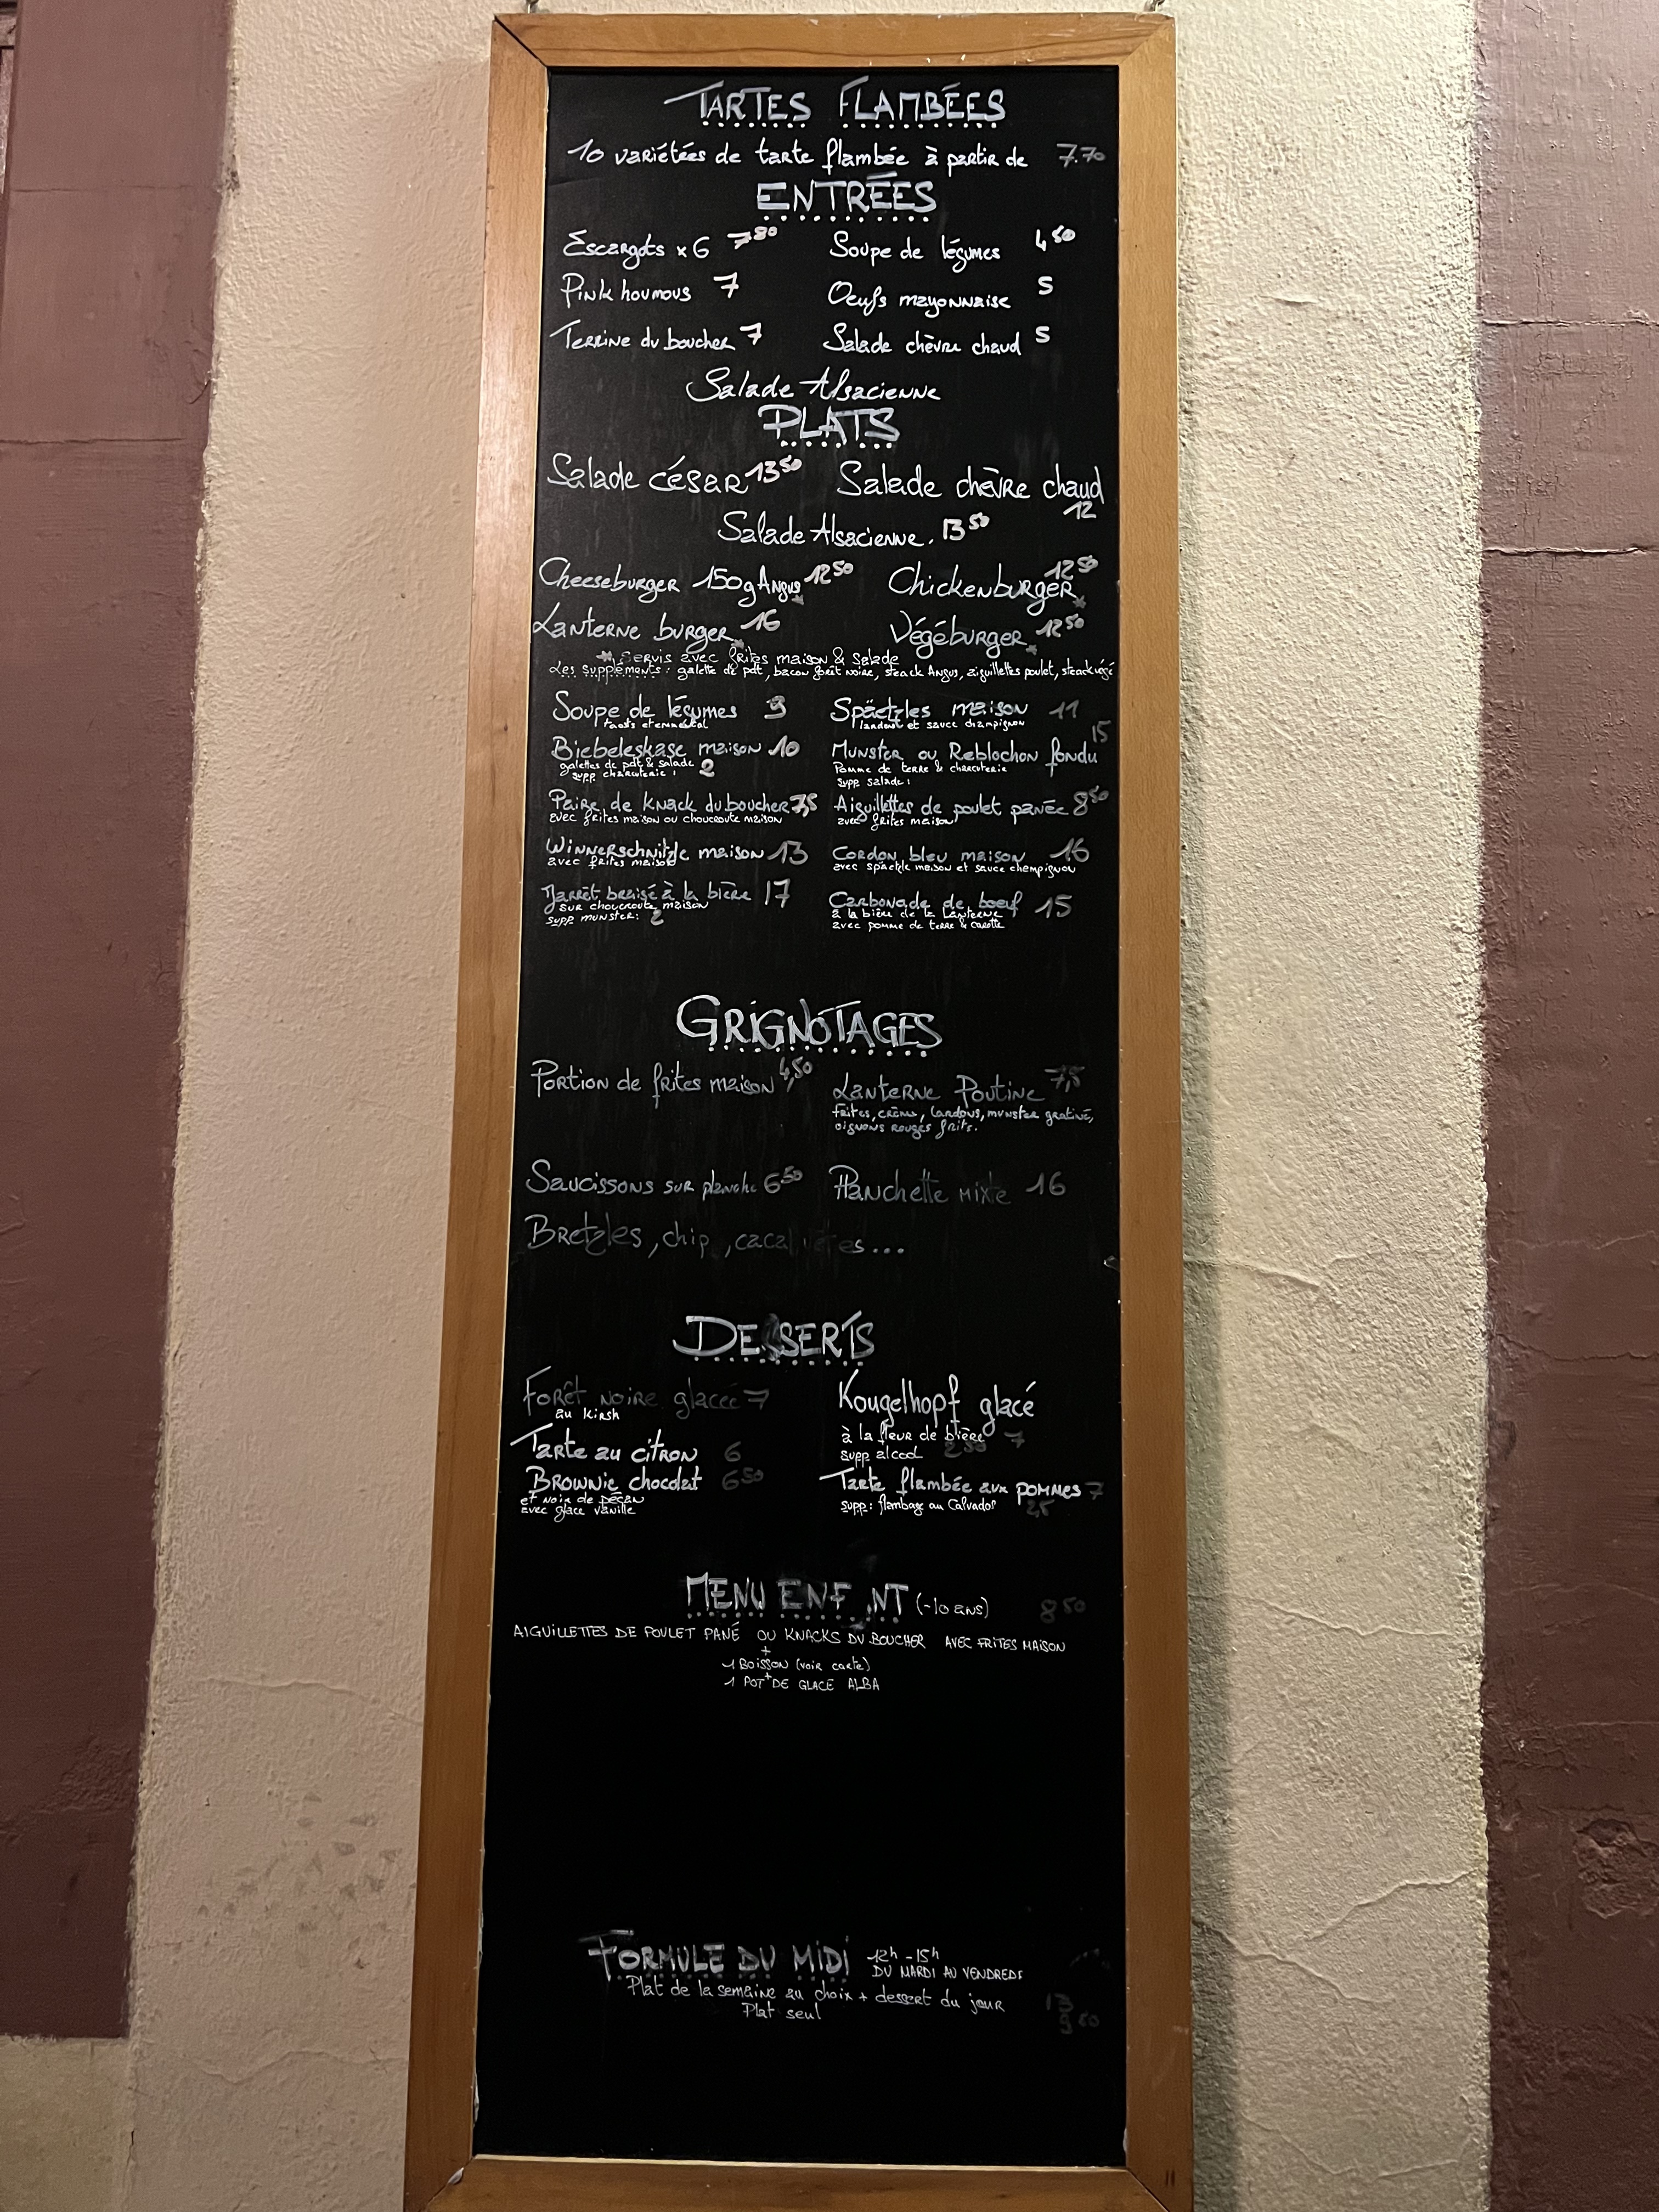 TARTES FLAMBÉES
10 variétées de tarte flambée à partir de 7.70
ENTRÉES
Escargots x 6 7 80 Soupe de légumes 4 50
Pink houmous 7 Oeufs mayonnaise 5
Terrine du boucher 7 Salade chèvre chaud 5
Salade Alsacienne
PLATS
Salade césar 13 50 Salade chèvre chaud 12
Salade Alsacienne. 13 50
Cheeseburger 150g Angus* 12 50 Chickenburger* 12 50
Lanterne burger* 16 Végéburger* 12 50
* Servis avec frites maison & Salade
Les suppléments : galette de pdt, bacon forêt noire, steack Angus, aiguillettes poulet, steack végé
Soupe de légumes 9 Späetzles maison 11
toasts et emmental lardons et sauce champignon
Biebeleskase maison 10 Munster ou Reblochon fondu 15
galettes de pdt & salade Pomme de terre & charcuterie
supp charcuterie : 2 supp salade :
Paire de knack du boucher 7,5 Aiguillettes de poulet panée 8 50
avec frites maison ou choucroute maison avec frites maison
Winnerschnitzle maison 13 Cordon bleu maison 16
avec frites maison avec späetzle maison et sauce chempignon
Jarret braisé à la bière 17 Carbonade de boeuf 15
sur choucroute maison à la bière de la Lanterne
supp munster: 2 avec pomme de terre & carotte
GRIGNOTAGES
Portion de frites maison 4,50 Lanterne Poutine 7,5
frites, crème, lardons, munster gratiné,
oignons rouges frits.
Saucissons sur planche 6 50 Planchette mixte 16
Bretzles, chip
DESSERTS
Forêt noire glacée 7 Kougelhopf glacé
au kirsh à la fleur de bière 7
supp alcool 2 50
Tarte au citron 6
Brownie chocolat 6 50 Tarte flambée aux pommes 7
et noix de pécan supp: flambage au Calvados 2,5
avec glace vanille
MENU ENF NT (-10 ans) 8 50
AIGUILLETTES DE POULET PANÉ OU KNACKS DU BOUCHER AVEC FRITES MAISON
+
1 BOISSON (voir carte)
+
1 POT DE GLACE ALBA
FORMULE DU MIDI 12h - 15h
DU MARDI AU VENDREDI
Plat de la semaine au choix + dessert du jour
Plat seul